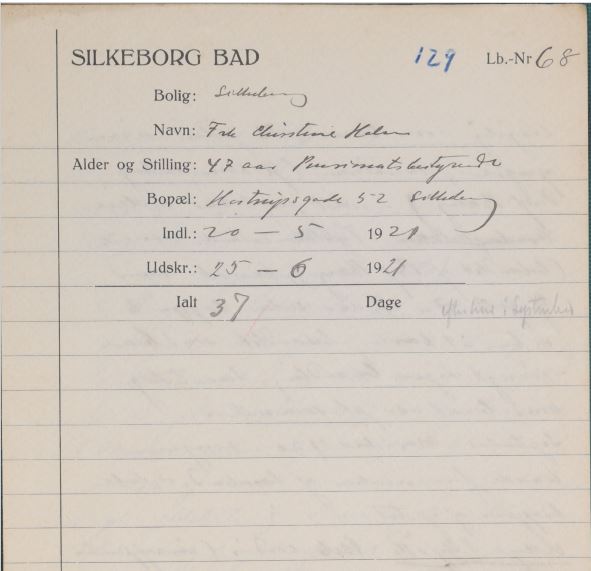 SILKEBORG BAD 129 Lb.-Nr 68
Bolig: Silkeborg
Navn: Frk Christine Holm
Alder og Stilling: 47 aar Pensionatsbestyrende
Bopæl: Hostrupsgade 52 Silkeborg
Indl.: 20 – 5 1921
Udskr.: 25 – 6 1921
Ialt 37 Dage
i September